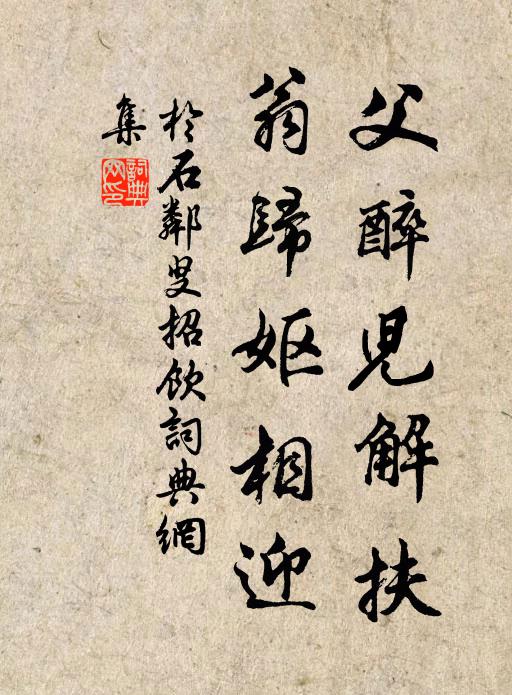 父醉兒解扶
翁歸嫗相迎
於石鄰叟招飲詞典網
集
詞典網印